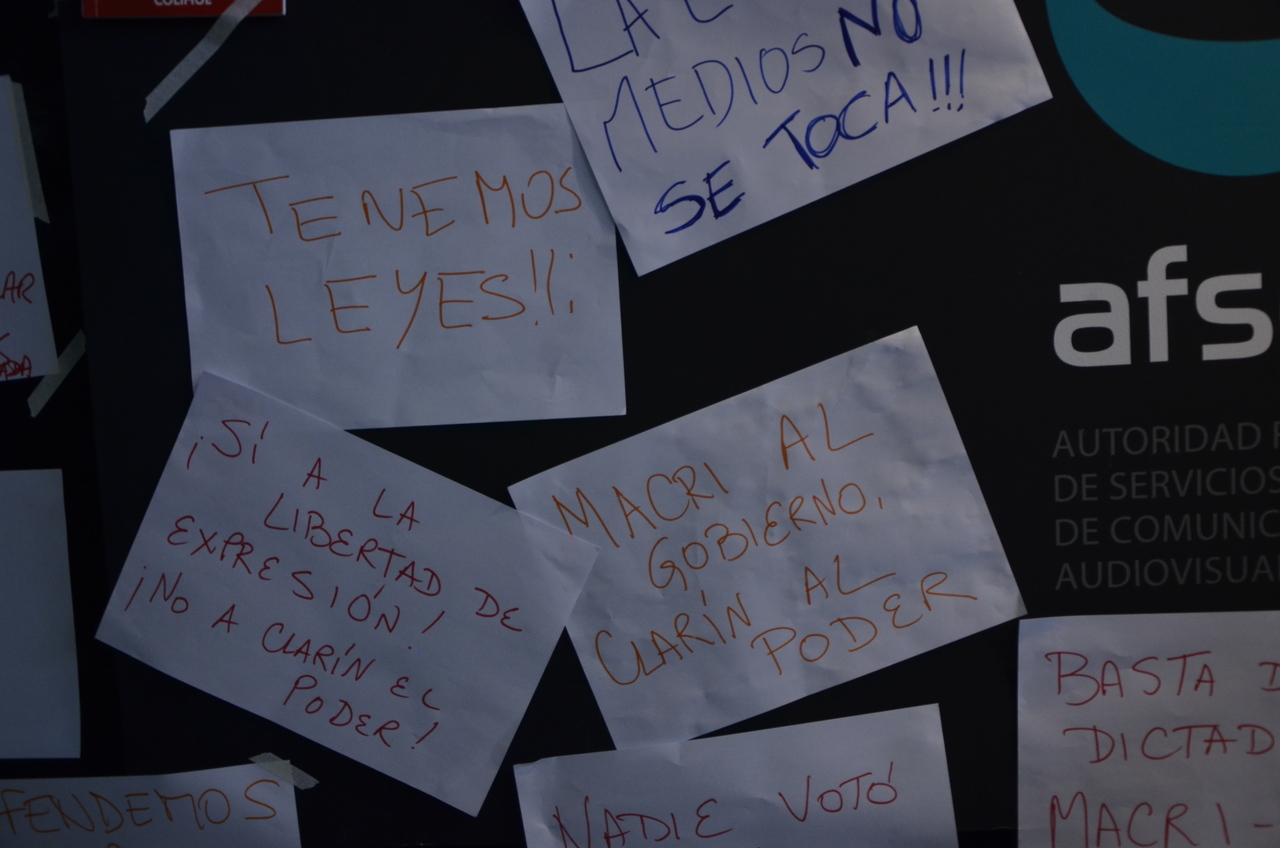 COLIHUE
LA
MEDIOS NO
SE TOCA!!!
TENEMOS
LEYES!!¡
¡SÍ
A LA
LIBERTAD DE
EXPRESIÓN!
¡NO A CLARÍN EL
PODER!
MACRI AL
GOBIERNO,
CLARÍN AL
PODER
afs
AUTORIDAD
DE SERVICIOS
DE COMUNIC
AUDIOVISUA
BASTA D
DICTAD
MACRI -
NADIE VOTÓ
FENDEMOS
AR